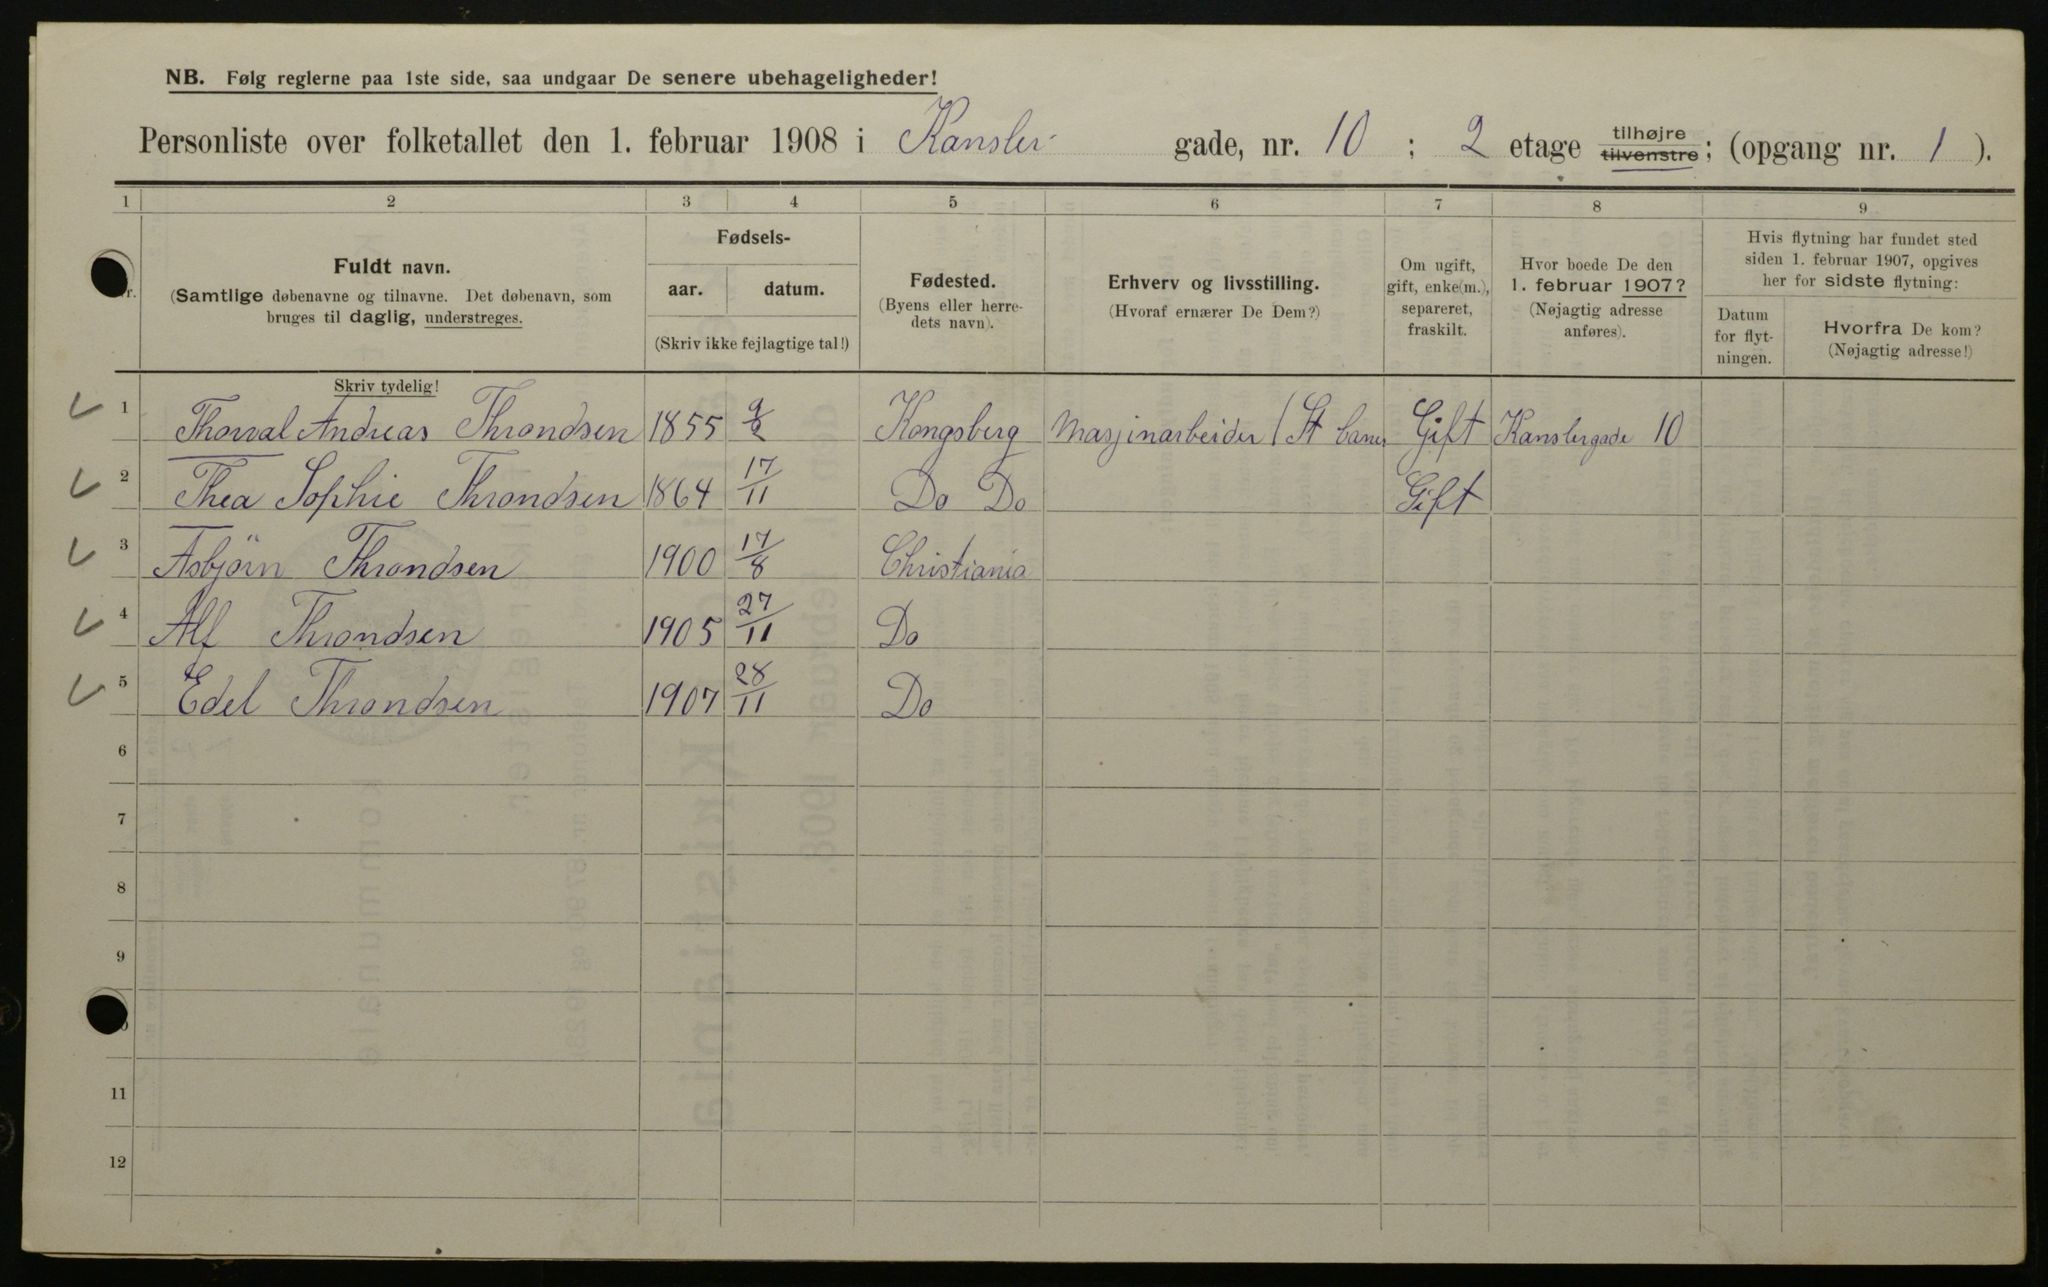 NB. Følg reglerne paa 1ste side, saa undgaar De senere ubehageligheder!
Personliste over folketallet den 1. februar 1908 i Kansler gade, nr. 10 ; 2 etage tilhøjre tilvenstre; (opgang nr. 1 ).
1 2 3 4 5 6 7 8 9
Fuldt navn.
(Samtlige døbenavne og tilnavne. Det døbenavn, som
bruges til daglig, understreges.
Skriv tydelig!
Fødsels-
aar. datum.
(Skriv ikke fejlagtige tal!)
Fødested.
(Byens eller herre-
dets navn).
Erhverv og livsstilling.
(Hvoraf ernærer De Dem?)
Om ugift,
gift, enke(m.),
separeret,
fraskilt.
Hvor boede De den
1. februar 1907?
(Nøjagtig adresse
anføres).
Hvis flytning har fundet sted
siden 1. februar 1907, opgives
her for sidste flytning:
Datum
for flyt-
ningen.
Hvorfra De kom?
(Nøjagtig adresse!)
1 Thorval Andreas Throndsen 1855 Kongsberg Masjinarbeider St Gift Kanslergade 10
2 Thea Sophie Throndsen 1864 17/11 Do Do Gift
3 Asbjörn Throndsen 1900 17/8 Christiania
4 Alf Throndsen 1905 27/11 Do
5 Edel Throndsen 1907 28/11 Do
6
7
8
9
11
12